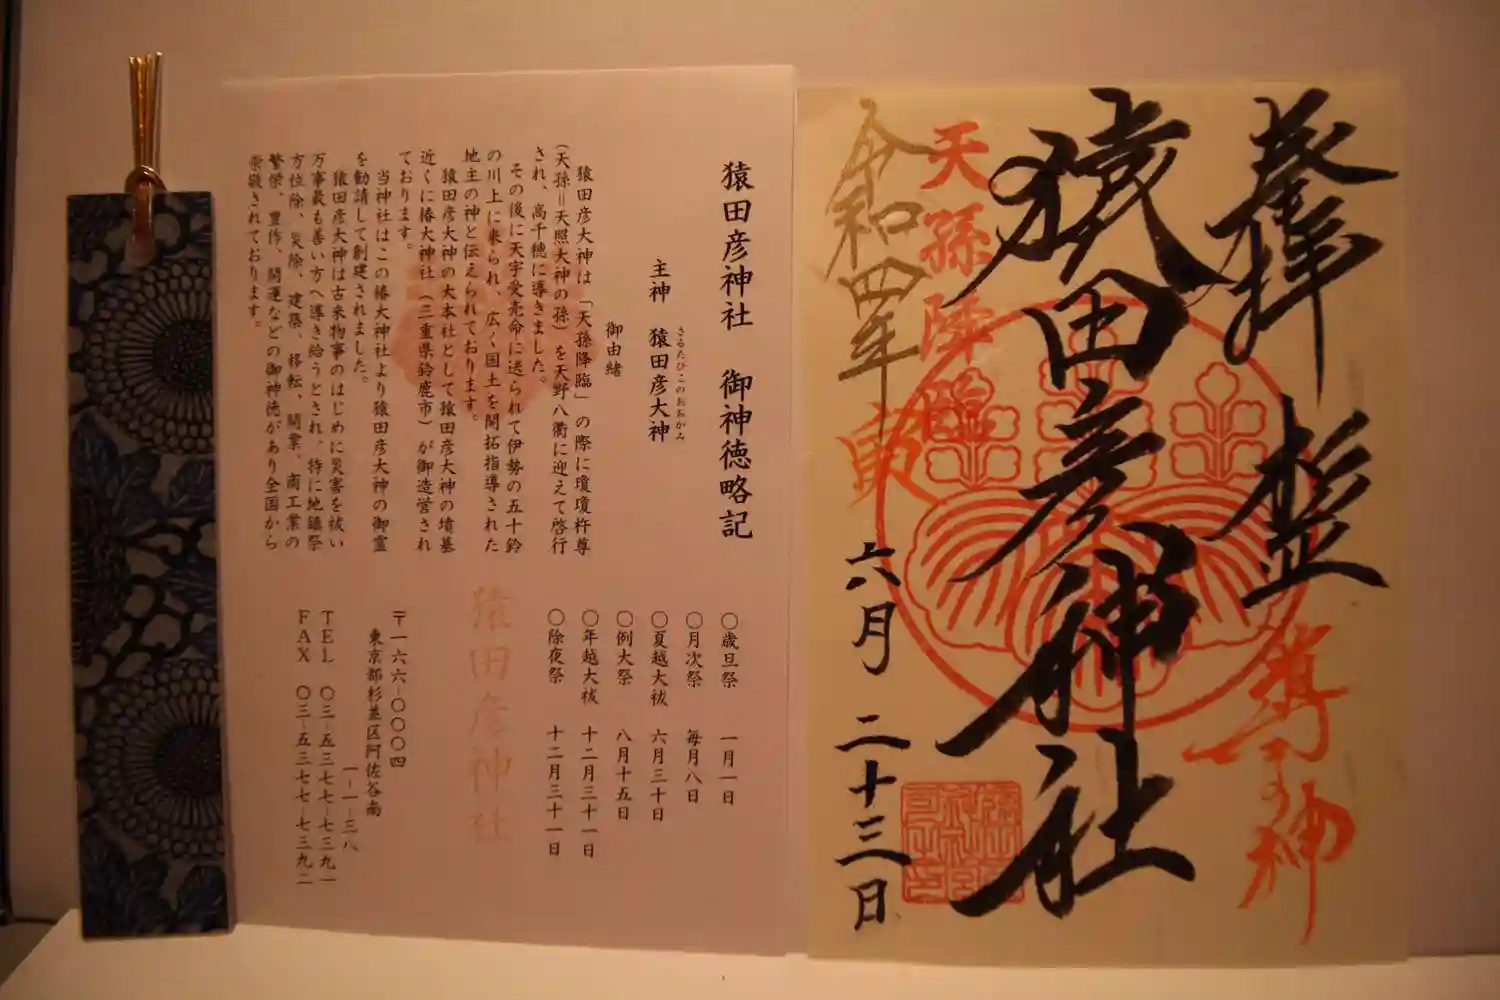 奉拝
杉並
導きの神
猿田彦神社
天孫降臨
令和四年
寅
六月 二十三日
猿田彦神社 御神徳略記
主神 猿田彦大神
さるたひこのおおかみ
御由緒
猿田彦大神は「天孫降臨」の際に瓊瓊杵尊
(天孫=天照大神の孫)を天野八衢に迎えて啓行
され、高千穂に導きました。
その後に天宇受売命に送られて伊勢の五十鈴
の川上に来られ、広く国土を開拓指導された
地主の神と伝えられております。
猿田彦大神の大本社として猿田彦大神の墳墓
近くに椿大神社(三重県鈴鹿市)が御造営され
ております。
当神社はこの椿大神社より猿田彦大神の御霊
を勧請して創建されました。
猿田彦大神は古来物事のはじめに災害を祓い
万事最も善い方へ導き給うとされ、特に地鎮祭
方位除、災除、建築、移転、開業、商工業の
繁栄、豊作、開運などの御神徳があり全国から
崇敬されております。
〇歳旦祭 一月一日
〇月次祭 毎月八日
〇夏越大祓 六月三十日
〇例大祭 八月十五日
〇年越大祓 十二月三十一日
〇除夜祭 十二月三十一日
猿田彦神社
〒一六六-〇〇〇四
東京都杉並区阿佐谷南
一-一-三八
TEL 〇三-五三七七-七三九一
FAX 〇三-五三七七-七三九二